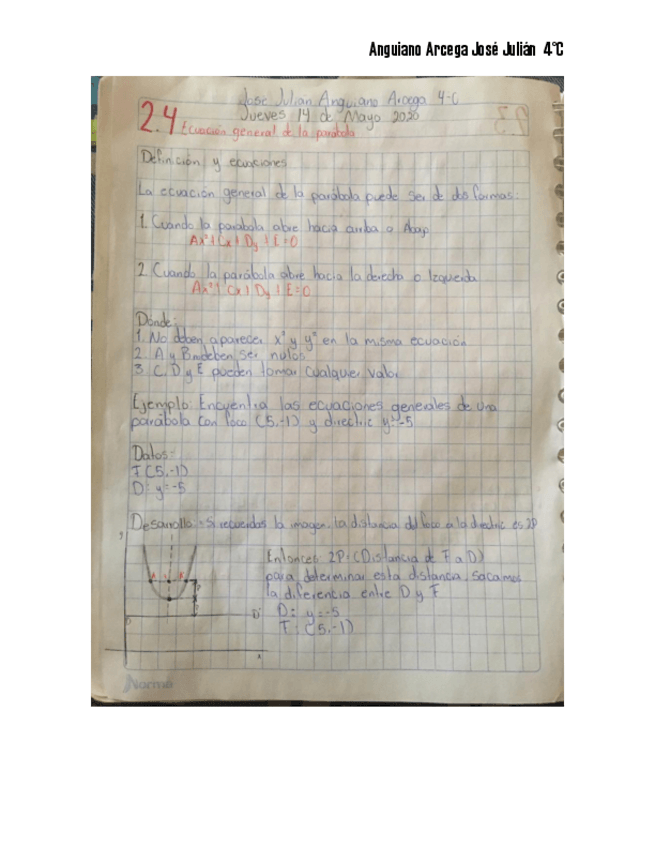 Anguiano Arcega José Julián 4°C
José Julián Anguiano Arcega 4-C
Jueves 14 de Mayo 2020
2.4 Ecuación general de la parabola
Definción y ecuaciones
La ecuación general de la parábola puede ser de dos formas:
1. Cuando la parabola abre hacia arriba o Abajo
Ax²+Cx+Dy+E=0
2. Cuando la parábola abre hacia la derecha o Izquierda
Ax²+Cx+Dy+E=0
Donde:
1. No deben aparecer x² y y² en la misma ecuación
2. A y B deben ser nulos
3. C, D y E pueden tomar cualquier valor
Ejemplo: Encuentra las ecuaciones generales de una
parábola con foco (5,-1) y directriz y=-5
Datos:
F(5,-1)
D: y=-5
Desarrollo: Si recuerdas la imagen, la distancia del foco a la directriz es 2P
Entonces 2P=(Distancia de F a D)
para determinar esta distancia, sacamos
la diferencia entre D y F
D: y=-5
F: (5,-1)
D
Norma